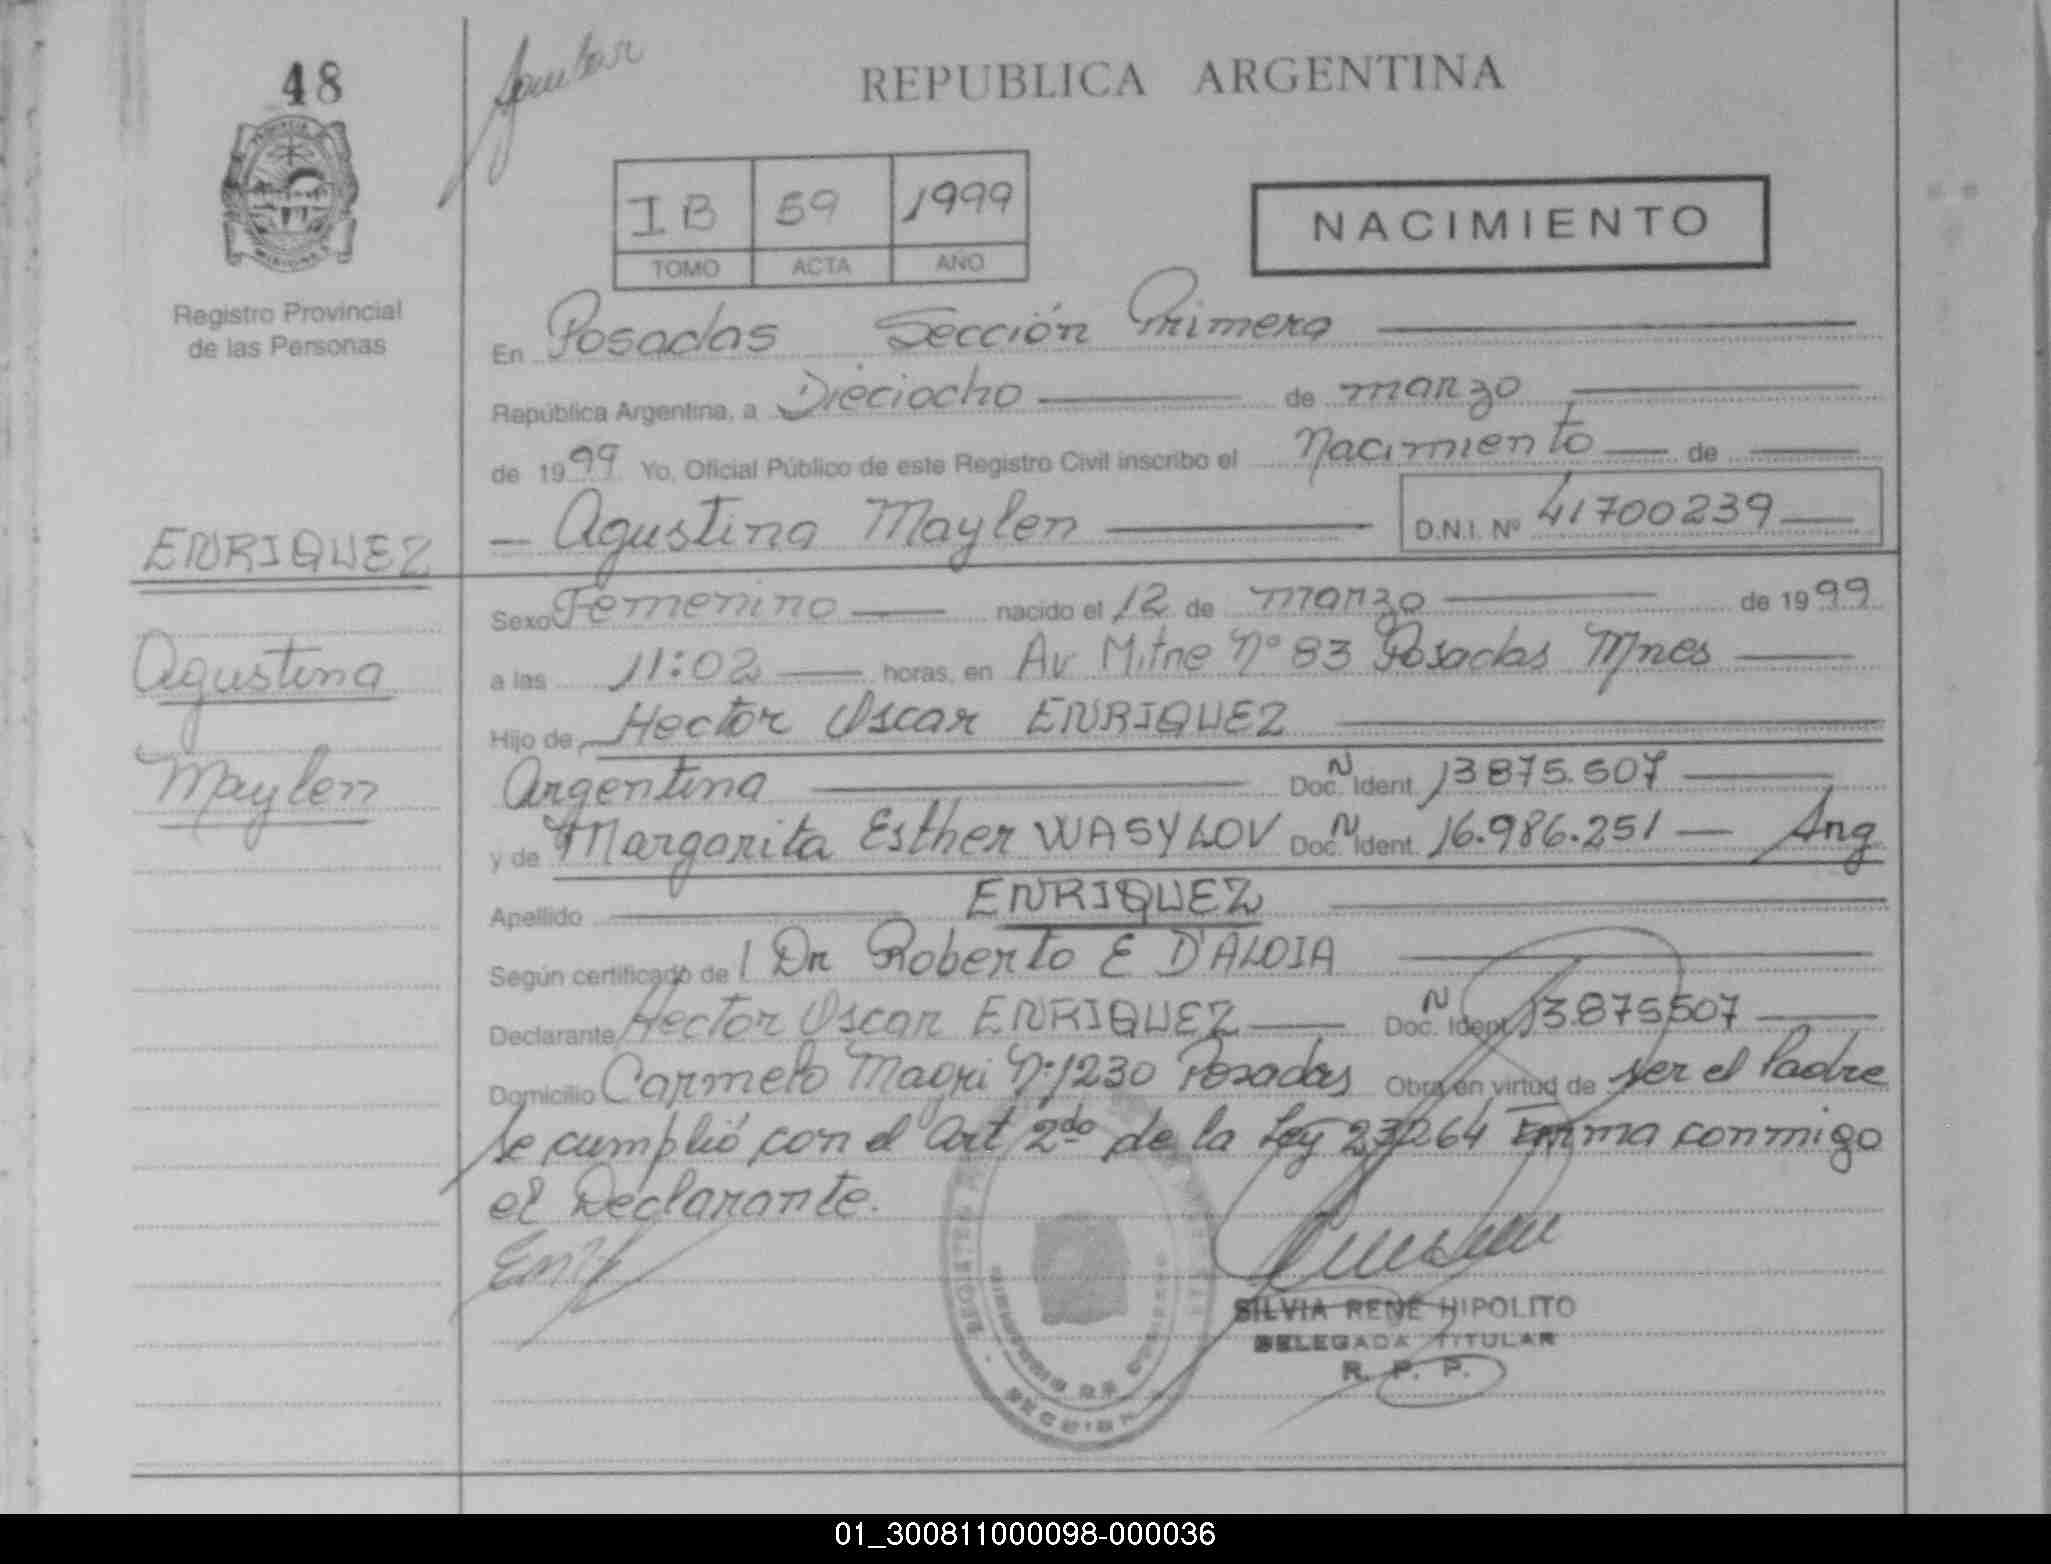 48
REPUBLICA ARGENTINA
IB 59 1999
TOMO ACTA AÑO
NACIMIENTO
Registro Provincial
de las Personas
En Posadas Sección Primera
República Argentina, a Dieciocho de marzo
de 1999 Yo, Oficial Público de este Registro Civil inscribo el Nacimiento de
Agustina Maylen D.N.I. Nº 41700239
ENRIQUEZ
Agustina
Maylen
Sexo Femenino nacido el 12 de marzo de 1999
a las 11:02 horas, en Av Mitre Nº 83 Posadas Mnes
Hijo de Hector Oscar ENRIQUEZ
Argentina Doc. N Ident. 13875.507
y de Margarita Esther WASYLOV Doc. N Ident. 16.986.251 Arg
Apellido ENRIQUEZ
Según certificado de Dr Roberto E D'ALOIA
Declarante Hector Oscar ENRIQUEZ Doc. N Ident. 13.875507
Domicilio Carmelo Magri Nº 1230 Posadas Obra en virtud de ser el Padre
Se cumplió con el Art 2do de la Ley 23264 Firma conmigo
el Declarante.
SILVIA RENE HIPOLITO
DELEGADA TITULAR
R. P. P.
SECCION
01_300811000098-000036